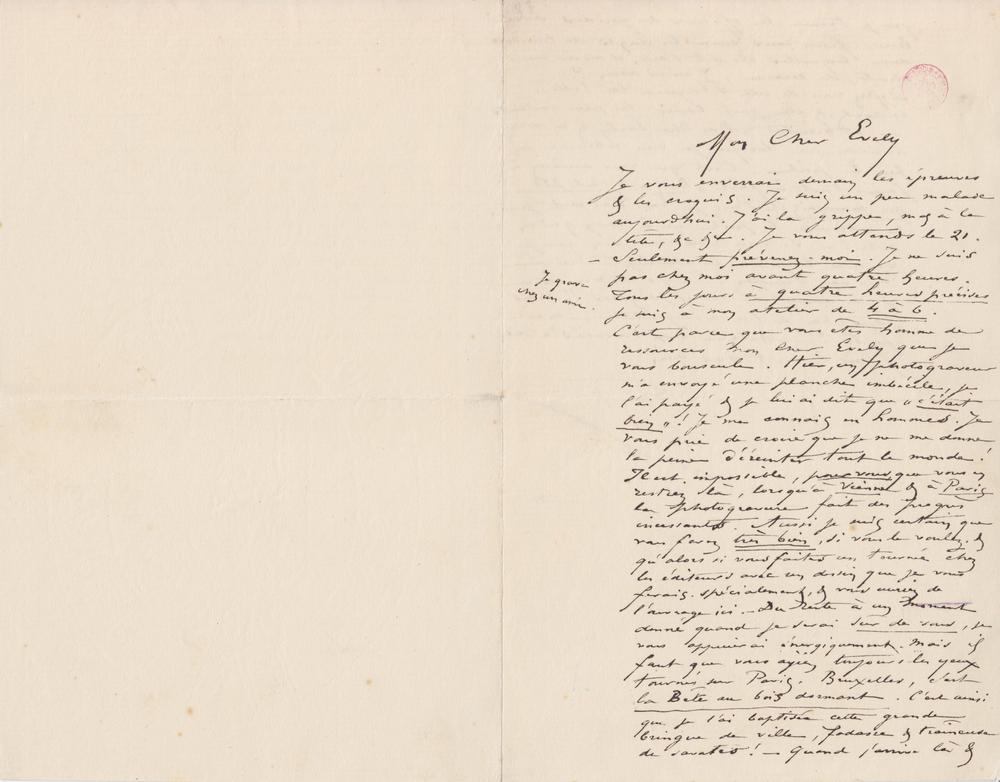 Mon Cher Evely
Je vous enverrai demain les épreuves
& les croquis. Je suis un peu malade
aujourdhui. J'ai la grippe, mal à la
tête, &c &c. Je vous attends le 21.
— Seulement prévenez-moi. Je ne suis
pas chez moi avant quatre heures.
Je grave
chez un ami.
Tous les jours à quatre heures précises
je suis à mon atelier de 4 à 6.
C'est parce que vous êtes homme de
ressources mon Cher Evely que je
vous bouscule. Hier, un photograveur
m'a envoyé une planche imbécile, je
l'ai payé & je lui ai dit que „c'était
bien„! Je me connais en hommes. Je
vous prie de croire que je ne me donne
la peine d'éreinter tout le monde!
Il est impossible, pour vous que vous en
restiez là, lorsqu'à Vienne & à Paris
la photogravure fait des progrès
incessants. Aussi je suis certain que
vous ferez très bien, si vous le voulez, &
qu'alors si vous faites un tournée chez
les éditeurs avec un dessin que je vous
ferais spécialement, & vous auriez de
l'ouvrage ici. — Du reste à un moment
donné quand je serai sur de vous, je
vous appuierai énergiquement. Mais il
faut que vous ayiez toujours les yeux
tournés sur Paris. Bruxelles, c'est
la Bête au bois dormant. C'est ainsi
que je l'ai baptisée cette grande
bringue de ville, fadasse & traineuse
de savates! — Quand j'arrive là &